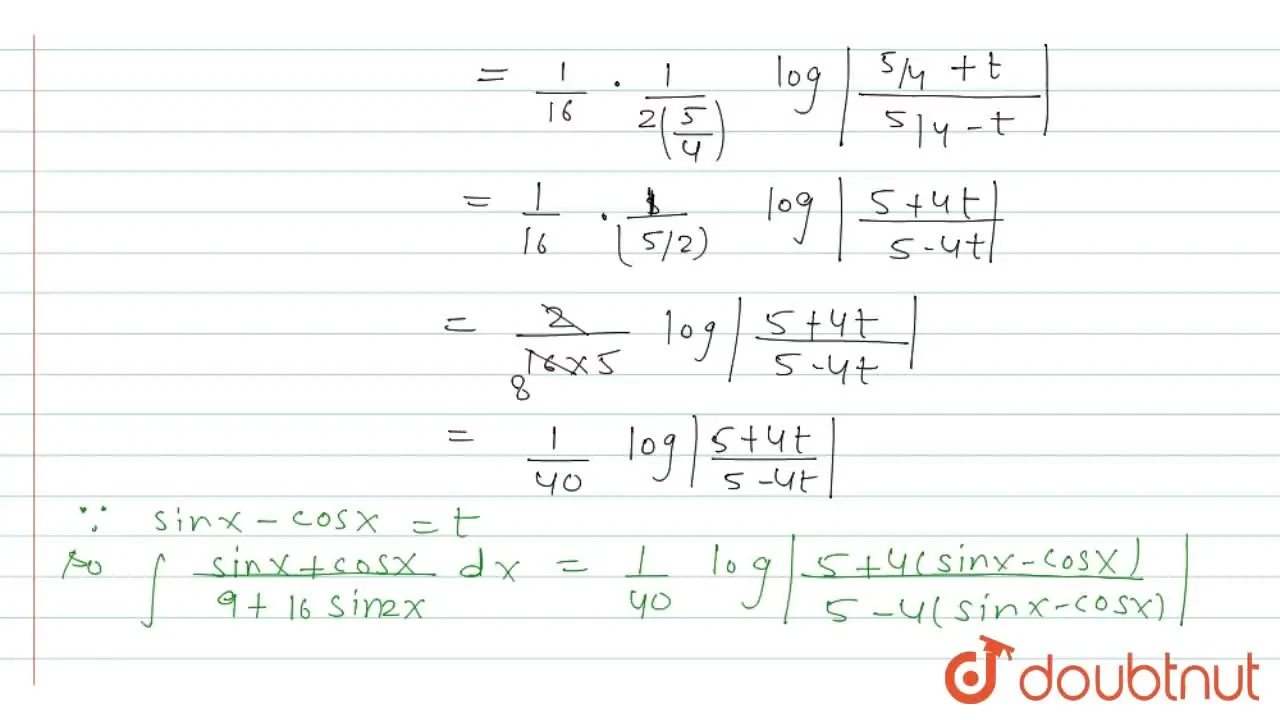 = 1/16 · 1/2(5/4) log |5/4 + t / 5/4 - t|
= 1/16 · 1/(5/2) log |5+4t / 5-4t|
= 2/16×5 log |5+4t / 5-4t|
8
= 1/40 log |5+4t / 5-4t|
∵ sinx - cosx = t
So ∫ sinx+cosx / 9+16 sin2x dx = 1/40 log |5+4(sinx-cosx) / 5-4(sinx-cosx)|
doubtnut